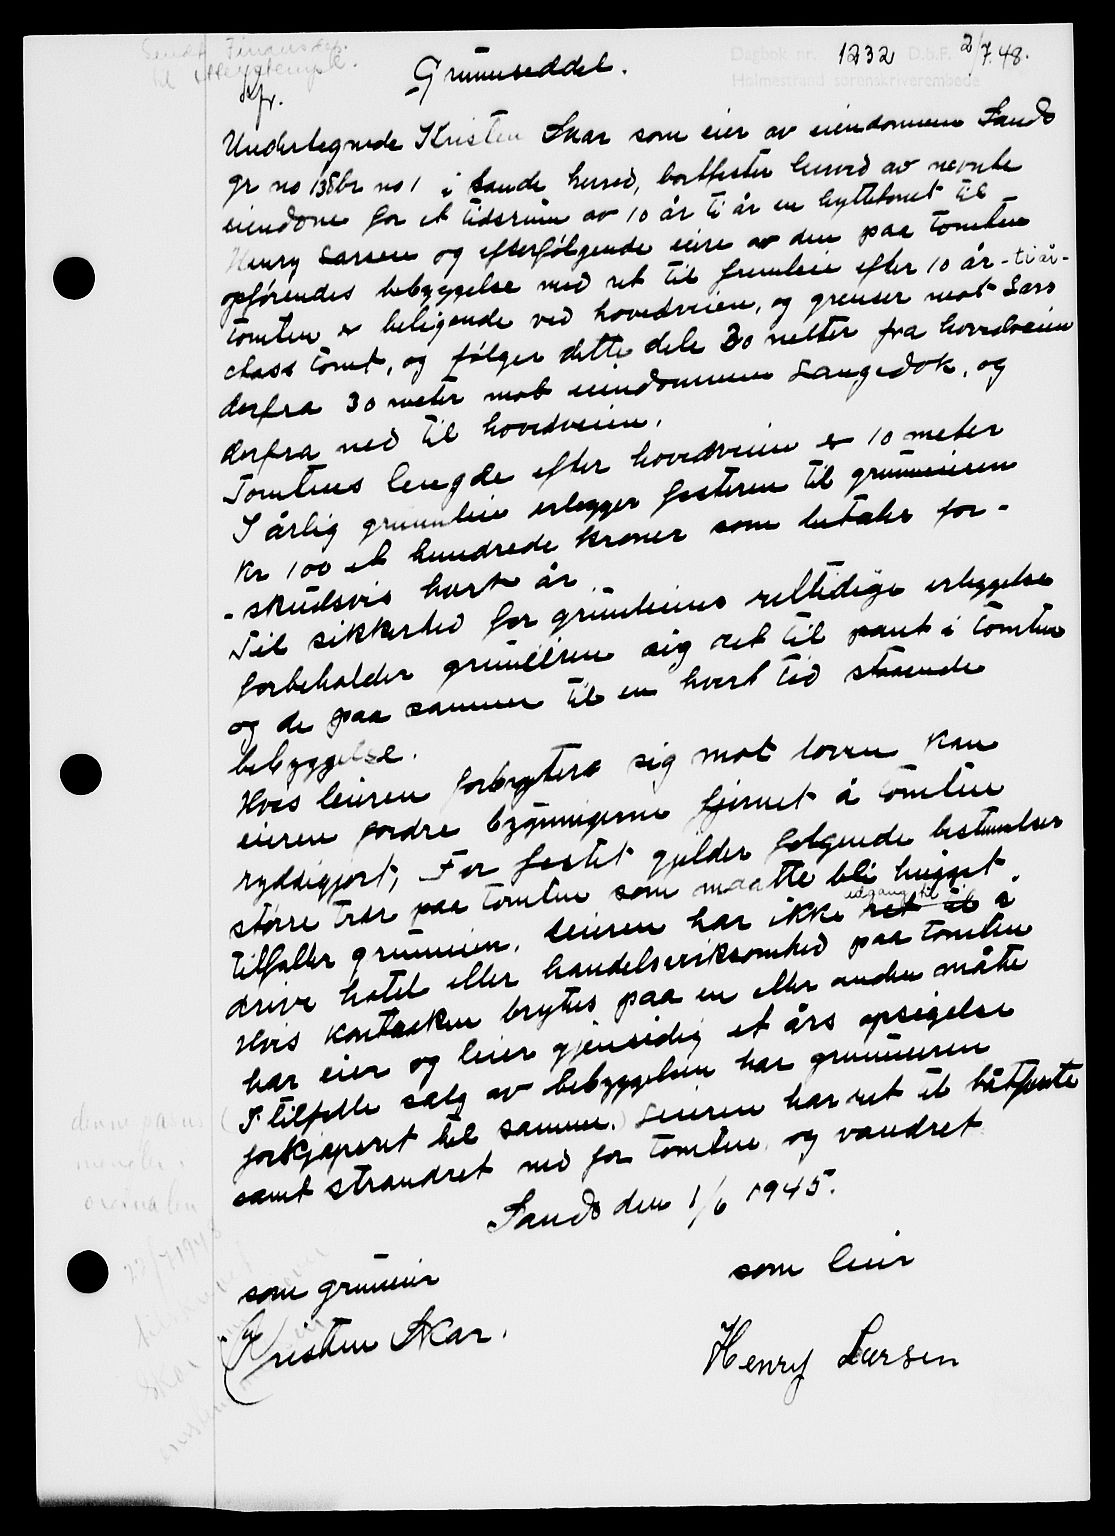 Sendt Finansdep.
til etterstempl.
Dagbok nr. 1232 D.b.F. 2/7.48.
Holmestrand sorenskriverembede
Grunnseddel.
Undertegnede Kristen Skar som eier av eiendommen Sands
gr no 138 br no 1 i Sande herred, bortfester herved av nevnte
eiendom for et tidsrum av 10 år ti år en hyttetomt til
Henry Larsen og efterfølgende eiere av den paa tomten
opførendes bebyggelse med ret til fremleie efter 10 år - ti år -
tomten er beligende ved hovedveien, og grenser mot Lars
chass tomt, og følger dette dele 30 metter fra hovedveien
derfra 30 meter mot eiendommen Langedok, og
derfra ned til hovedveien.
Tomtens lengde efter hovedveien er 10 meter
I årlig grunnleie erlegger festeren til grunneieren
Kr 100 et hundrede kroner som betales for-
-skudsvis hvert år
Til sikkerhed for grunleiens rettidige erleggelse
forbeholder gruneieren sig ret til pant i tomten
og de paa sammen til en hvert tid staaende
bebyggelse.
Hvis leieren forbrytera sig mot loven kan
eieren fordre bygningerne fjernet å tomten
ryddiggjort, For festet gjelder følgende bestemelser
større trær paa tomten som maatte bli hugget
tilfaller gruneien. Leieren har ikke ret til adgang til å
drive hotel eller handelsvirksomhed paa tomten
Hvis kontrakten brytes paa en eller anden måte
har eier og leier gjensidig et års opsigelse
(I tilfelle salg av bebyggelsen har grunneieren
forkjøpsret til samme.) Leieren har ret til båtfeste
samt strandret ned for tomten og vandret
denne pasus
mangler i
orginalen
22/7 1948
Sands den 1/6 1945.
som gruneier
som leier
Kristen Skar.
Henry Larsen